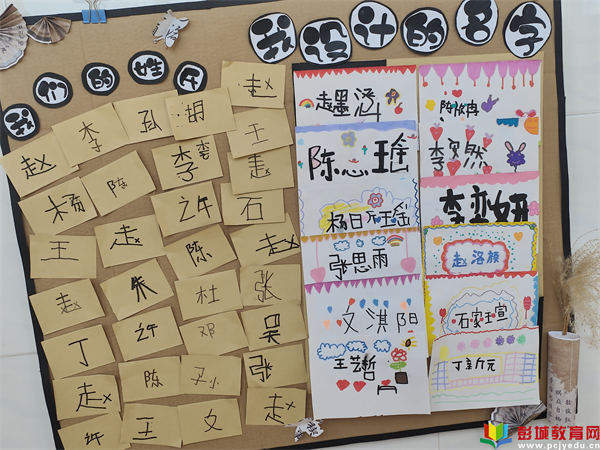 我设计的名字
我们的姓氏
赵
李
孙
胡
赵
王
杨
陈
李
李
赵
王
赵
许
石
赵
朱
陈
杜
赵
张
丁
许
邓
吴
赵
陈
张
许
王
文
赵
赵墨澄
陈心瑶
张思雨
文淇阳
王艺哲
李奕然
李奕妍
赵洛颜
石家瑄
彭城教育网
www.pcjyedu.cn